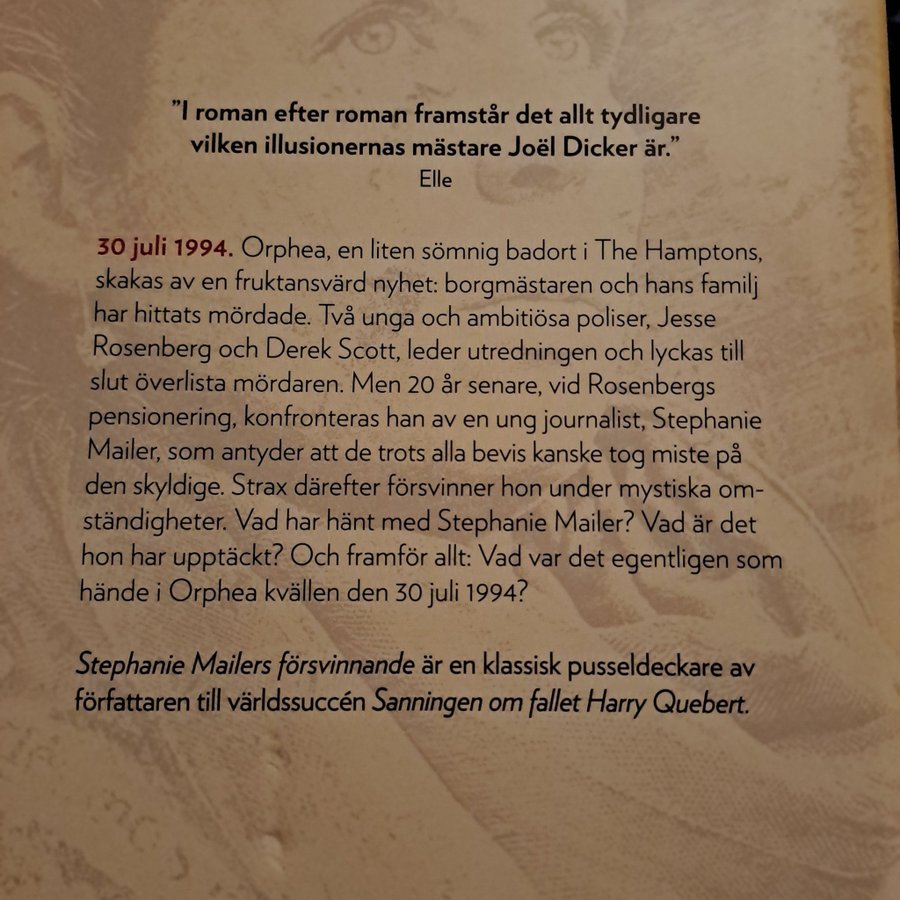 ”I roman efter roman framstår det allt tydligare
vilken illusionernas mästare Joël Dicker är.”
Elle
30 juli 1994. Orphea, en liten sömnig badort i The Hamptons,
skakas av en fruktansvärd nyhet: borgmästaren och hans familj
har hittats mördade. Två unga och ambitiösa poliser, Jesse
Rosenberg och Derek Scott, leder utredningen och lyckas till
slut överlista mördaren. Men 20 år senare, vid Rosenbergs
pensionering, konfronteras han av en ung journalist, Stephanie
Mailer, som antyder att de trots alla bevis kanske tog miste på
den skyldige. Strax därefter försvinner hon under mystiska om-
ständigheter. Vad har hänt med Stephanie Mailer? Vad är det
hon har upptäckt? Och framför allt: Vad var det egentligen som
hände i Orphea kvällen den 30 juli 1994?
Stephanie Mailers försvinnande är en klassisk pusseldeckare av
författaren till världssuccén Sanningen om fallet Harry Quebert.